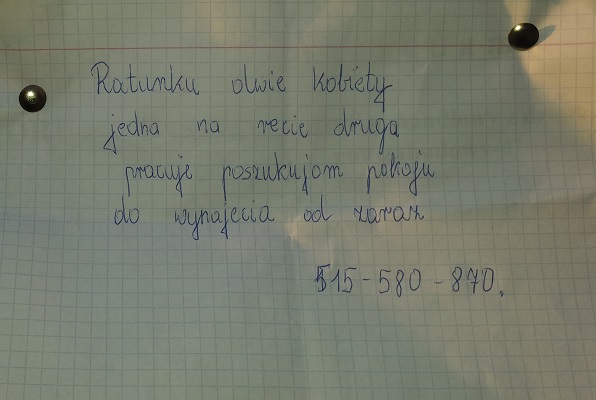 Ratunku dwie kobiety
jedna na recie druga
pracuje poszukujom pokoju
do wynajecia od zaraz
515-580-870.